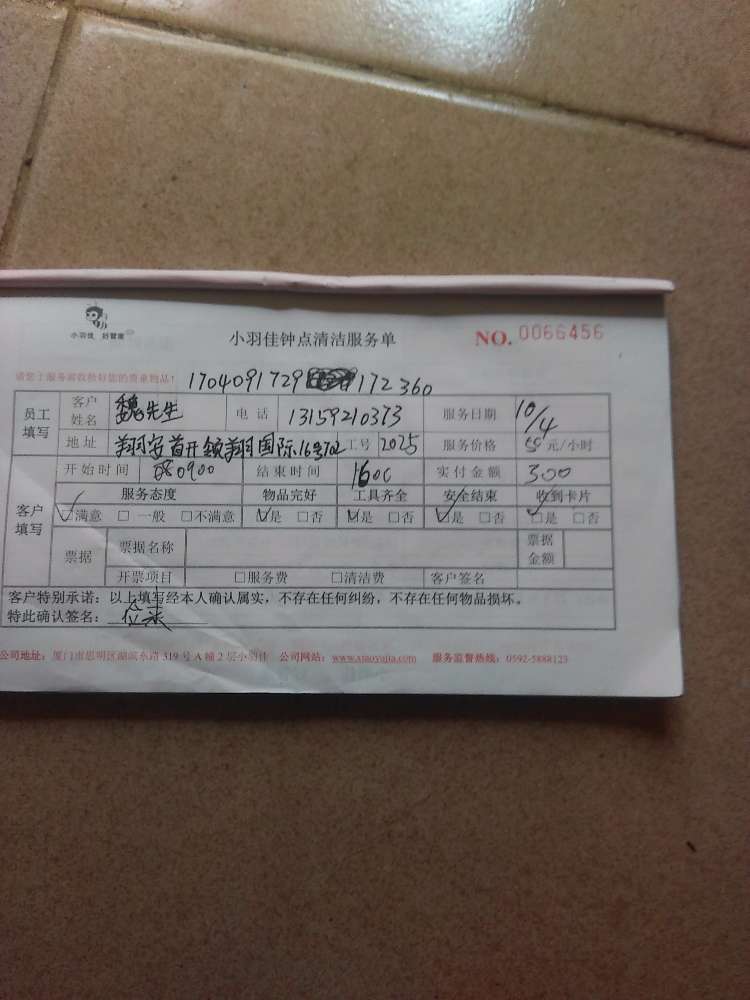 小羽佳 好管家
小羽佳钟点清洁服务单
NO. 0066456
请您于服务前收拾好您的贵重物品！ 1704091729 172360
员工填写 客户姓名 魏先生 电话 13159210373 服务日期 10/4
地址 翔安首开领翔国际16号702 工号 2025 服务价格 元/小时
客户填写 开始时间 080900 结束时间 1600 实付金额 300
服务态度 物品完好 工具齐全 安全结束 收到卡片
☑满意 □一般 □不满意 ☑是 □否 ☑是 □否 ☑是 □否 ☑是 □否
票据 票据名称 票据金额
开票项目 □服务费 □清洁费 客户签名
客户特别承诺：以上填写经本人确认属实，不存在任何纠纷，不存在任何物品损坏。
特此确认签名：
公司地址：厦门市思明区湖滨东路319号A幢2层小羽佳 公司网站：www.xiaoyujia.com 服务监督热线：0592-5888123